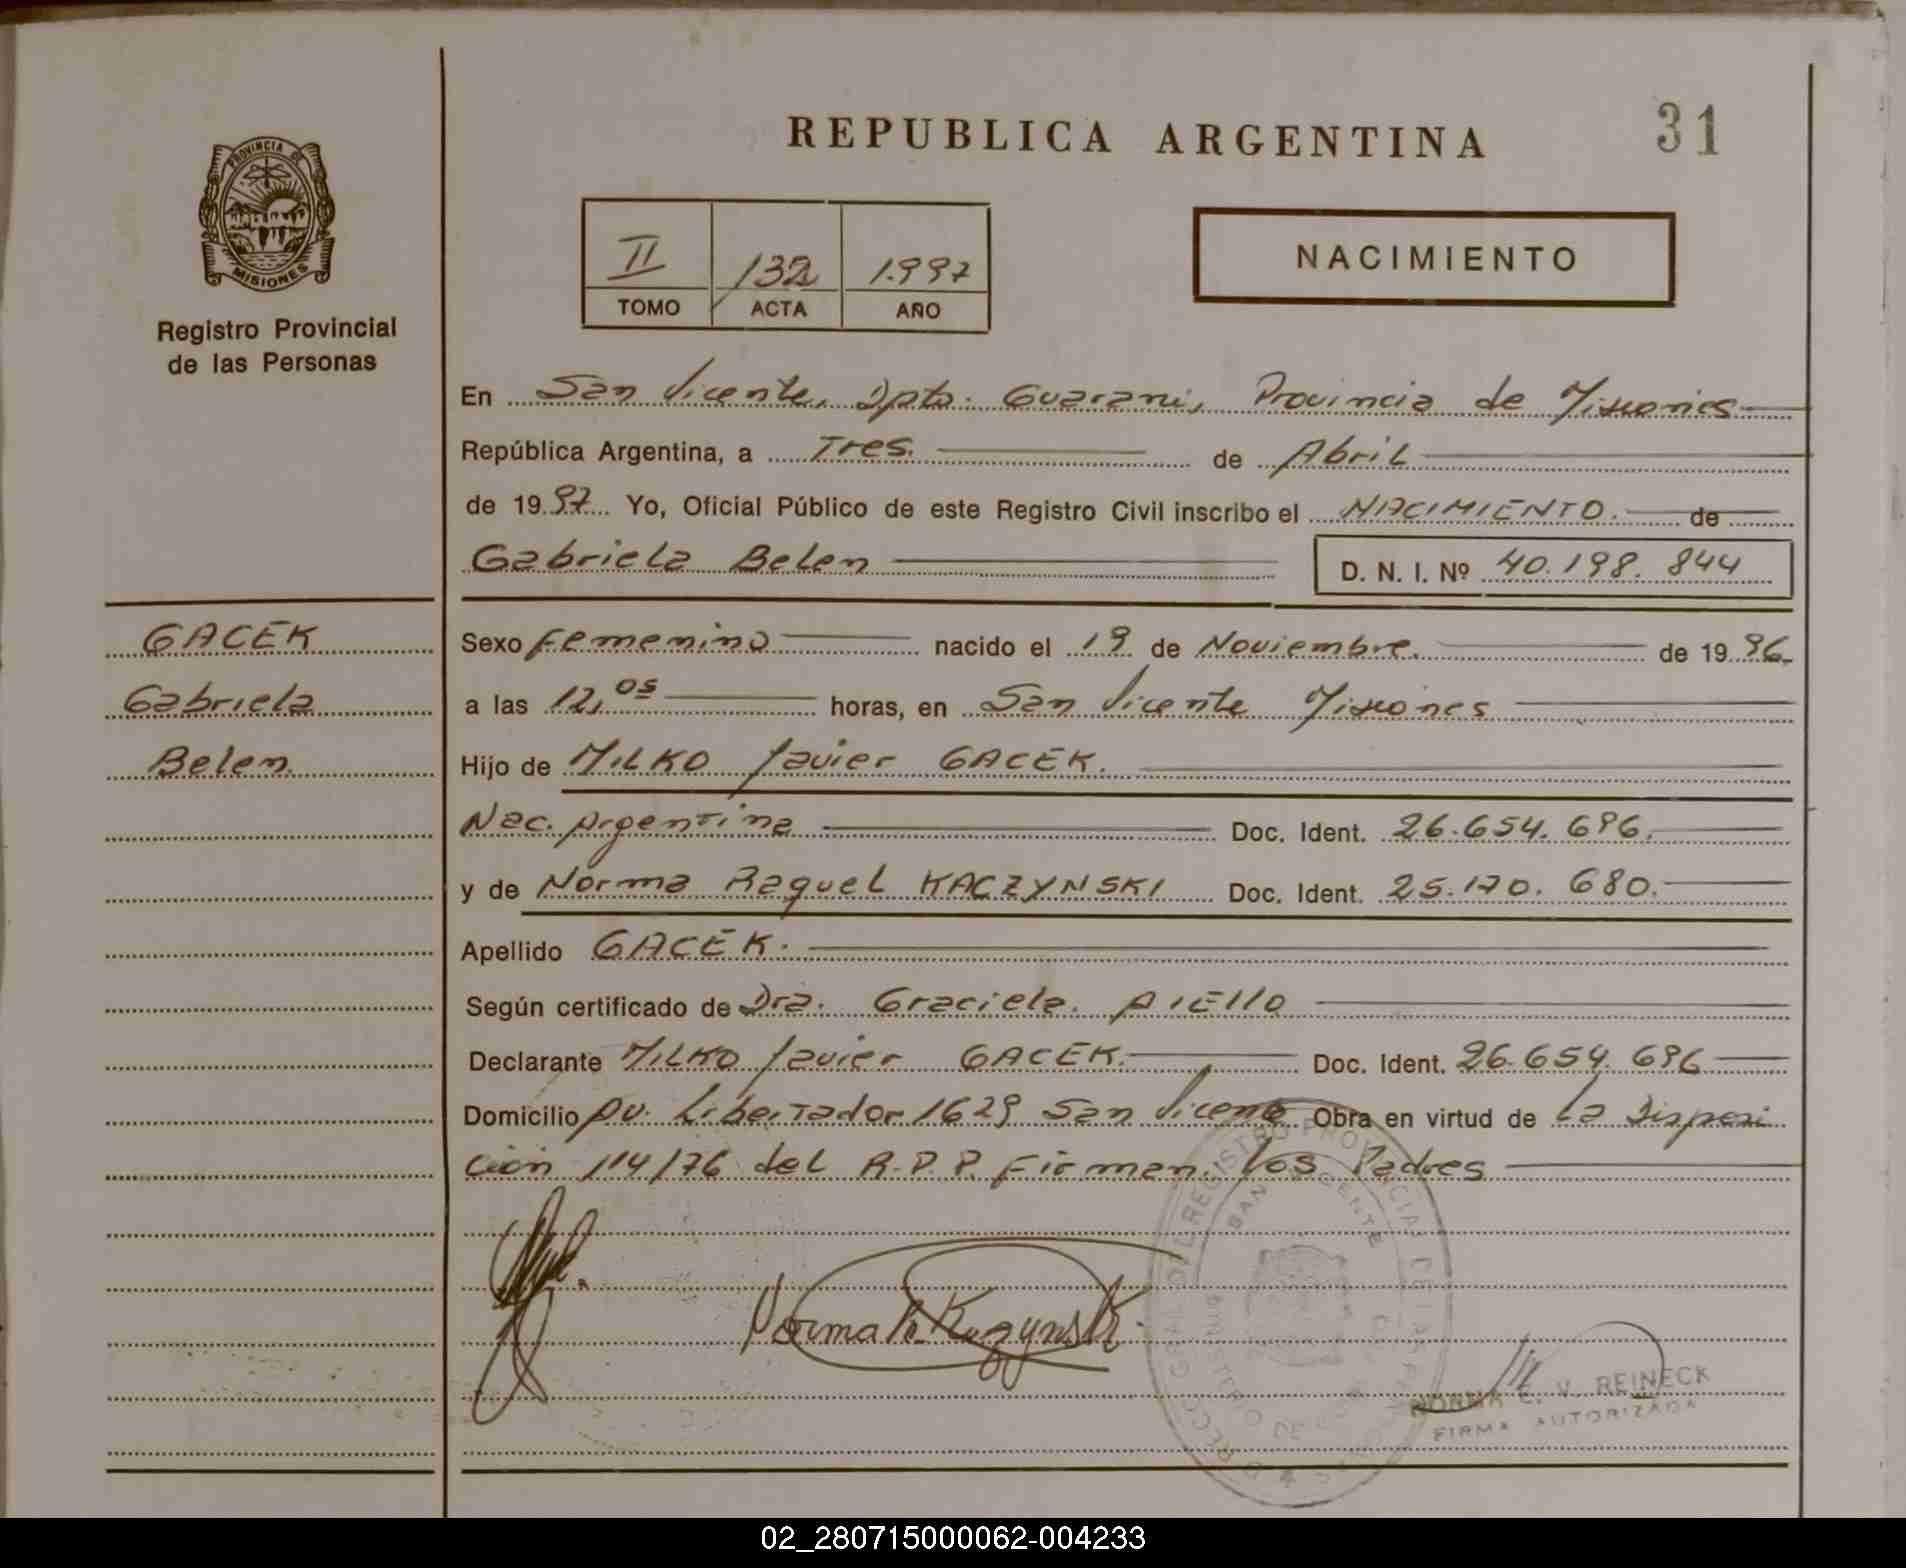 REPUBLICA ARGENTINA
31
PROVINCIA DE
MISIONES
Registro Provincial
de las Personas
II 132 1.997
TOMO ACTA AÑO
NACIMIENTO
En San Vicente, Dpto. Guarani, Provincia de Misiones
República Argentina, a Tres. de Abril
de 1997 Yo, Oficial Público de este Registro Civil inscribo el NACIMIENTO. de
Gabriela Belen D. N. I. Nº 40.198.844
GACEK
Gabriela
Belen.
Sexo Femenino nacido el 19 de Noviembre. de 1996.
a las 12,05 horas, en San Vicente Misiones
Hijo de MILKO Javier GACEK.
Nac. Argentina Doc. Ident. 26.654.696.
y de Norma Raquel KACZYNSKI Doc. Ident. 25.170.680.
Apellido GACEK.
Según certificado de Dra. Graciela
Declarante MILKO Javier GACEK. Doc. Ident. 26.654.696
Domicilio Av. Libertador 1629 San Vicente Obra en virtud de La Disposi
ción 114/76 del R.P.P. Firman los Padres
Norma R. Kaczynski
NORMA E. V. REINECK
FIRMA AUTORIZADA
02_280715000062-004233